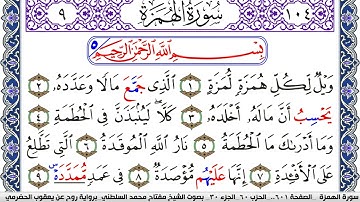 ١٠٤ سُورَةُ الْهُمَزَةِ ٩
بِسْمِ اللَّهِ الرَّحْمَٰنِ الرَّحِيمِ
وَيْلٌ لِّكُلِّ هُمَزَةٍ لُّمَزَةٍ ١ الَّذِي جَمَّعَ مَالًا وَعَدَّدَهُ ٢
يَحْسِبُ أَنَّ مَالَهُ أَخْلَدَهُ ٣ كَلَّا لَيُنبَذَنَّ فِي الْحُطَمَةِ ٤
وَمَا أَدْرَىٰكَ مَا الْحُطَمَةُ ٥ نَارُ اللَّهِ الْمُوقَدَةُ ٦ الَّتِي تَطَّلِعُ
عَلَى الْأَفْئِدَةِ ٧ إِنَّهَا عَلَيْهُم مُّؤْصَدَةٌ ٨ فِي عَمَدٍ مُّمَدَّدَةٍ ٩
سورة الهمزة الصفحة ٦٠١.. الحزب ٦٠. الجزء ٣٠. بصوت الشيخ مفتاح محمد السلطني برواية روح عن يعقوب الحضرمي